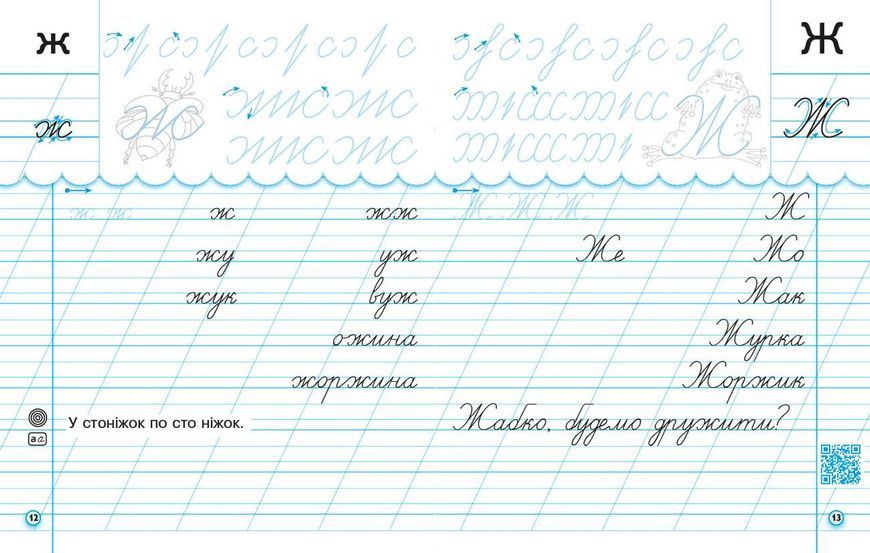 ж
ж
ж ж ж жж
жу уж
жук вуж
ожина
жоржина
У стоніжок по сто ніжок.
12
Ж
Ж
Ж Ж Ж Ж
Же Жо
Жак
Журка
Жоржик
Жабко, будемо дружити?
13